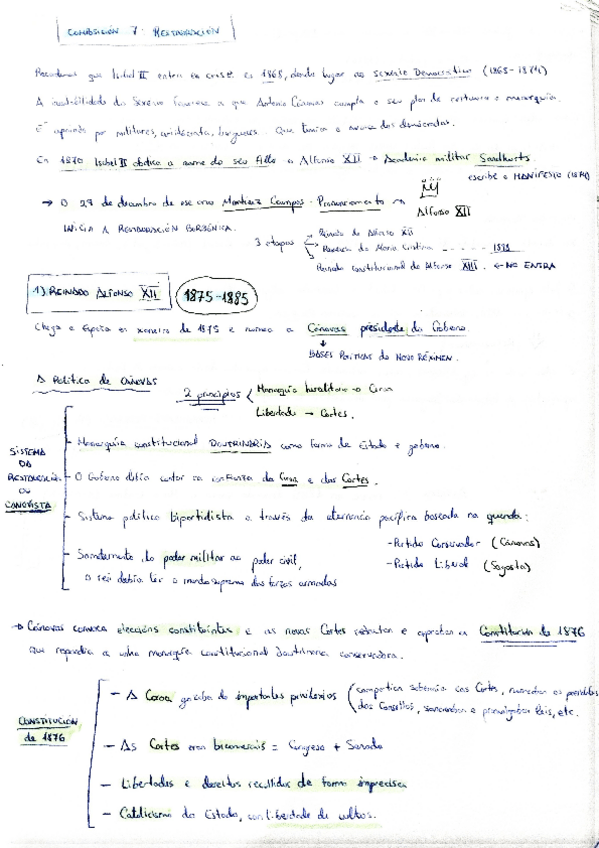 COMPOSICIÓN 7: RESTAURACIÓN
Recordemos que Isabel II entra en crise en 1868, dando lugar ao Sexenio Democrático (1868-1874)
A inestabilidade do Sexenio favorece a que Antonio Cánovas cumpla o seu plan de restaurar a monarquía.
É apoiado por militares, aristócratas, burgueses. Que temían o avance dos demócratas.
En 1870 Isabel II abdica a nome do seu fillo → Alfonso XII → Academia militar Sandhurts
escribe o MANIFESTO (1874)
→ O 29 de decembro de ese ano Martínez Campos - Pronunciamento →
Alfonso XII
INICIA A RESTAURACIÓN BORBÓNICA.
3 etapas
Reinado de Alfonso XII
Rexencia de María Cristina
Reinado constitucional de Alfonso XIII. ← NO ENTRA
1) REINADO ALFONSO XII 1875-1885
Chega a España en xaneiro de 1875 e nomea a Cánovas presidente do Goberno.
BASES POLÍTICAS DO NOVO RÉXIMEN.
A Política de Cánovas
2 principios
Monarquía hereditaria → Coroa
Liberdade → Cortes.
SISTEMA DA RESTAURACIÓN OU CANOVISTA
- Monarquía constitucional DOUTRINARIA como forma de Estado e goberno.
- O Goberno debía contar coa confianza da Coroa e das Cortes.
- Sistema político bipartidista a través da alternancia pacífica baseada na quenda:
- Partido Conservador (Cánovas)
- Partido Liberal (Sagasta)
- Sometemento do poder militar ao poder civil,
o rei debía ter o mando supremo das forzas armadas
→ Cánovas convoca eleccións constituíntes e as novas Cortes redactan e aproban a Constitución de 1876
que respondía a unha monarquía constitucional doutrinaria conservadora.
CONSTITUCIÓN de 1876
- A Coroa gozaba de importantes privilexios (compartía soberanía coas Cortes, nomeaba os presidentes
dos Consellos, sancionaba e promulgaba leis, etc.
- As Cortes eran bicamerais = Congreso + Senado
- Liberdades e dereitos recollidos de forma imprecisa
- Catolicismo do Estado, con liberdade de cultos.